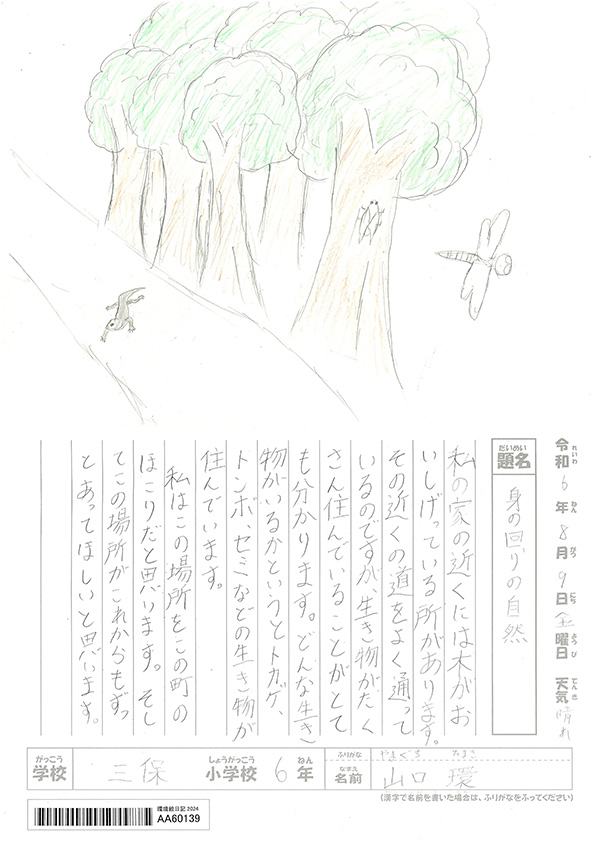 令和6年8月9日金曜日 天気晴れ
れいわ ねん がつ にち ようび てんき
だいめい
題名 身の回りの自然
私の家の近くには木がお
いしげっている所があります。
その近くの道をよく通って
いるのですが、生き物がたく
さん住んでいることがとて
も分かります。どんな生き
物がいるかというとトカゲ、
トンボ、セミなどの生き物が
住んでいます。
私はこの場所をこの町の
ほこりだと思います。そし
てこの場所がこれからもずっ
とあってほしいと思います。
がっこう しょうがっこう ねん ふりがな やまぐち たまき
学校 三保 小学校 6年 なまえ 名前 山口 環
(漢字で名前を書いた場合は、ふりがなをふってください)
環境絵日記 2024
AA60139